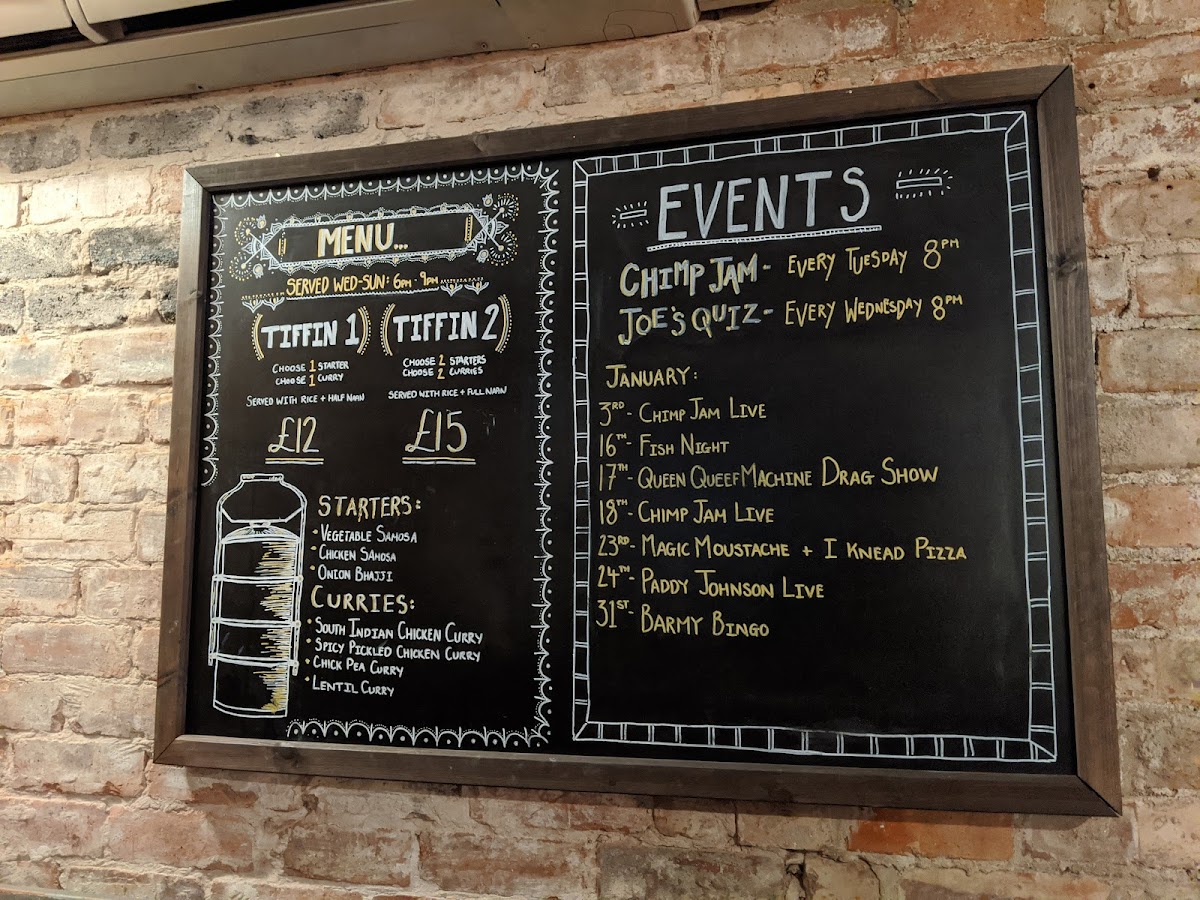 MENU...
SERVED WED-SUN: 6PM - 9PM
TIFFIN 1
CHOOSE 1 STARTER
CHOOSE 1 CURRY
SERVED WITH RICE + HALF NAAN
£12
TIFFIN 2
CHOOSE 2 STARTERS
CHOOSE 2 CURRIES
SERVED WITH RICE + FULL NAAN
£15
STARTERS:
• VEGETABLE SAMOSA
• CHICKEN SAMOSA
• ONION BHAJJI
CURRIES:
• SOUTH INDIAN CHICKEN CURRY
• SPICY PICKLED CHICKEN CURRY
• CHICK PEA CURRY
• LENTIL CURRY
EVENTS
CHIMP JAM - EVERY TUESDAY 8PM
JOE'S QUIZ - EVERY WEDNESDAY 8PM
JANUARY:
3RD - CHIMP JAM LIVE
16TH - FISH NIGHT
17TH - QUEEN QUEEFMACHINE DRAG SHOW
18TH - CHIMP JAM LIVE
23RD - MAGIC MOUSTACHE + I KNEAD PIZZA
24TH - PADDY JOHNSON LIVE
31ST - BARMY BINGO